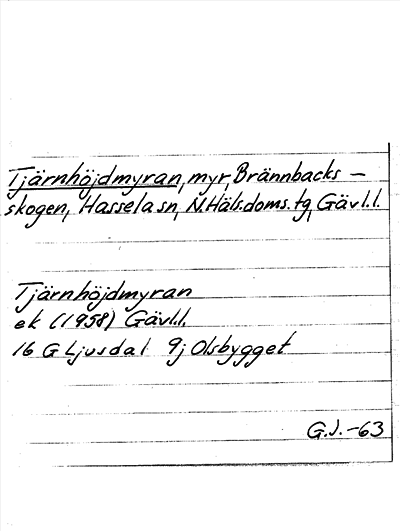 Tjärnhöjdmyran, myr, Brännbacks-
skogen, Hassela sn, N.Häls.doms.tg, Gävl.l.
Tjärnhöjdmyran
ek (1958) Gävl.l.
16 G Ljusdal 9j Olsbygget
G.J.-63